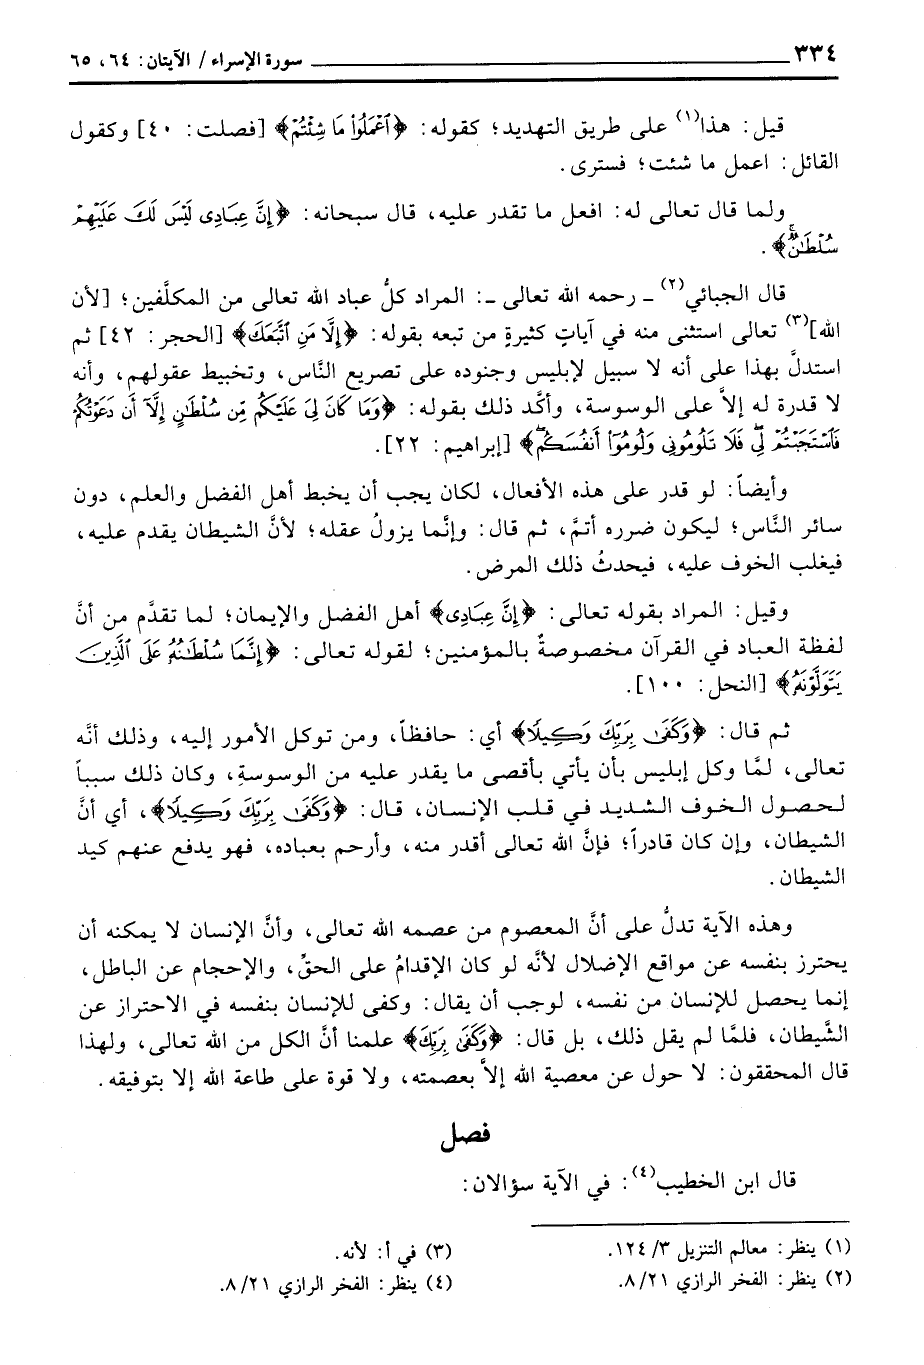 ٣٣٤ سورة الإسراء / الآيتان: ٦٤، ٦٥
قيل: هذا(١) على طريق التهديد؛ كقوله: ﴿ٱعۡمَلُواْ مَا شِئۡتُمۡ﴾ [فصلت: ٤٠] وكقول
القائل: اعمل ما شئت؛ فسترى.
ولما قال تعالى له: افعل ما تقدر عليه، قال سبحانه: ﴿إِنَّ عِبَادِى لَيۡسَ لَكَ عَلَيۡهِمۡ
سُلۡطَٰنٌۚ﴾.
قال الجبائي(٢) ـ رحمه الله تعالى ـ: المراد كلُّ عباد الله تعالى من المكلَّفين؛ [لأن
الله](٣) تعالى استثنى منه في آياتٍ كثيرةٍ من تبعه بقوله: ﴿إِلَّا مَنِ ٱتَّبَعَكَ﴾ [الحجر: ٤٢] ثم
استدلَّ بهذا على أنه لا سبيل لإبليس وجنوده على تصريع النَّاس، وتخبيط عقولهم، وأنه
لا قدرة له إلاَّ على الوسوسة، وأكَّد ذلك بقوله: ﴿وَمَا كَانَ لِىَ عَلَيۡكُم مِّن سُلۡطَٰنٍ إِلَّآ أَن دَعَوۡتُكُمۡ
فَٱسۡتَجَبۡتُمۡ لِىۖ فَلَا تَلُومُونِى وَلُومُوٓاْ أَنفُسَكُمۖ﴾ [إبراهيم: ٢٢].
وأيضاً: لو قدر على هذه الأفعال، لكان يجب أن يخبط أهل الفضل والعلم، دون
سائر النَّاس؛ ليكون ضرره أتمَّ، ثم قال: وإنَّما يزولُ عقله؛ لأنَّ الشيطان يقدم عليه،
فيغلب الخوف عليه، فيحدثُ ذلك المرض.
وقيل: المراد بقوله تعالى: ﴿إِنَّ عِبَادِى﴾ أهل الفضل والإيمان؛ لما تقدَّم من أنَّ
لفظة العباد في القرآن مخصوصةٌ بالمؤمنين؛ لقوله تعالى: ﴿إِنَّمَا سُلۡطَٰنُهُۥ عَلَى ٱلَّذِينَ
يَتَوَلَّوۡنَهُۥ﴾ [النحل: ١٠٠].
ثم قال: ﴿وَكَفَىٰ بِرَبِّكَ وَكِيلًا﴾ أي: حافظاً، ومن توكل الأمور إليه، وذلك أنَّه
تعالى، لمَّا وكل إبليس بأن يأتي بأقصى ما يقدر عليه من الوسوسةِ، وكان ذلك سبباً
لحصول الخوف الشديد في قلب الإنسان، قال: ﴿وَكَفَىٰ بِرَبِّكَ وَكِيلًا﴾، أي أنَّ
الشيطان، وإن كان قادراً؛ فإنَّ الله تعالى أقدر منه، وأرحم بعباده، فهو يدفع عنهم كيد
الشيطان.
وهذه الآية تدلُّ على أنَّ المعصوم من عصمه الله تعالى، وأنَّ الإنسان لا يمكنه أن
يحترز بنفسه عن مواقع الإضلال لأنَّه لو كان الإقدامُ على الحقِّ، والإحجام عن الباطل،
إنما يحصل للإنسان من نفسه، لوجب أن يقال: وكفى للإنسان بنفسه في الاحتراز عن
الشَّيطان، فلمَّا لم يقل ذلك، بل قال: ﴿وَكَفَىٰ بِرَبِّكَ﴾ علمنا أنَّ الكل من الله تعالى، ولهذا
قال المحققون: لا حول عن معصية الله إلاَّ بعصمته، ولا قوة على طاعة الله إلا بتوفيقه.
فصل
قال ابن الخطيب(٤): في الآية سؤالان:
(١) ينظر: معالم التنزيل ٣/ ١٢٤.
(٢) ينظر: الفخر الرازي ٢١/ ٨.
(٣) في أ: لأنه.
(٤) ينظر: الفخر الرازي ٢١/ ٨.